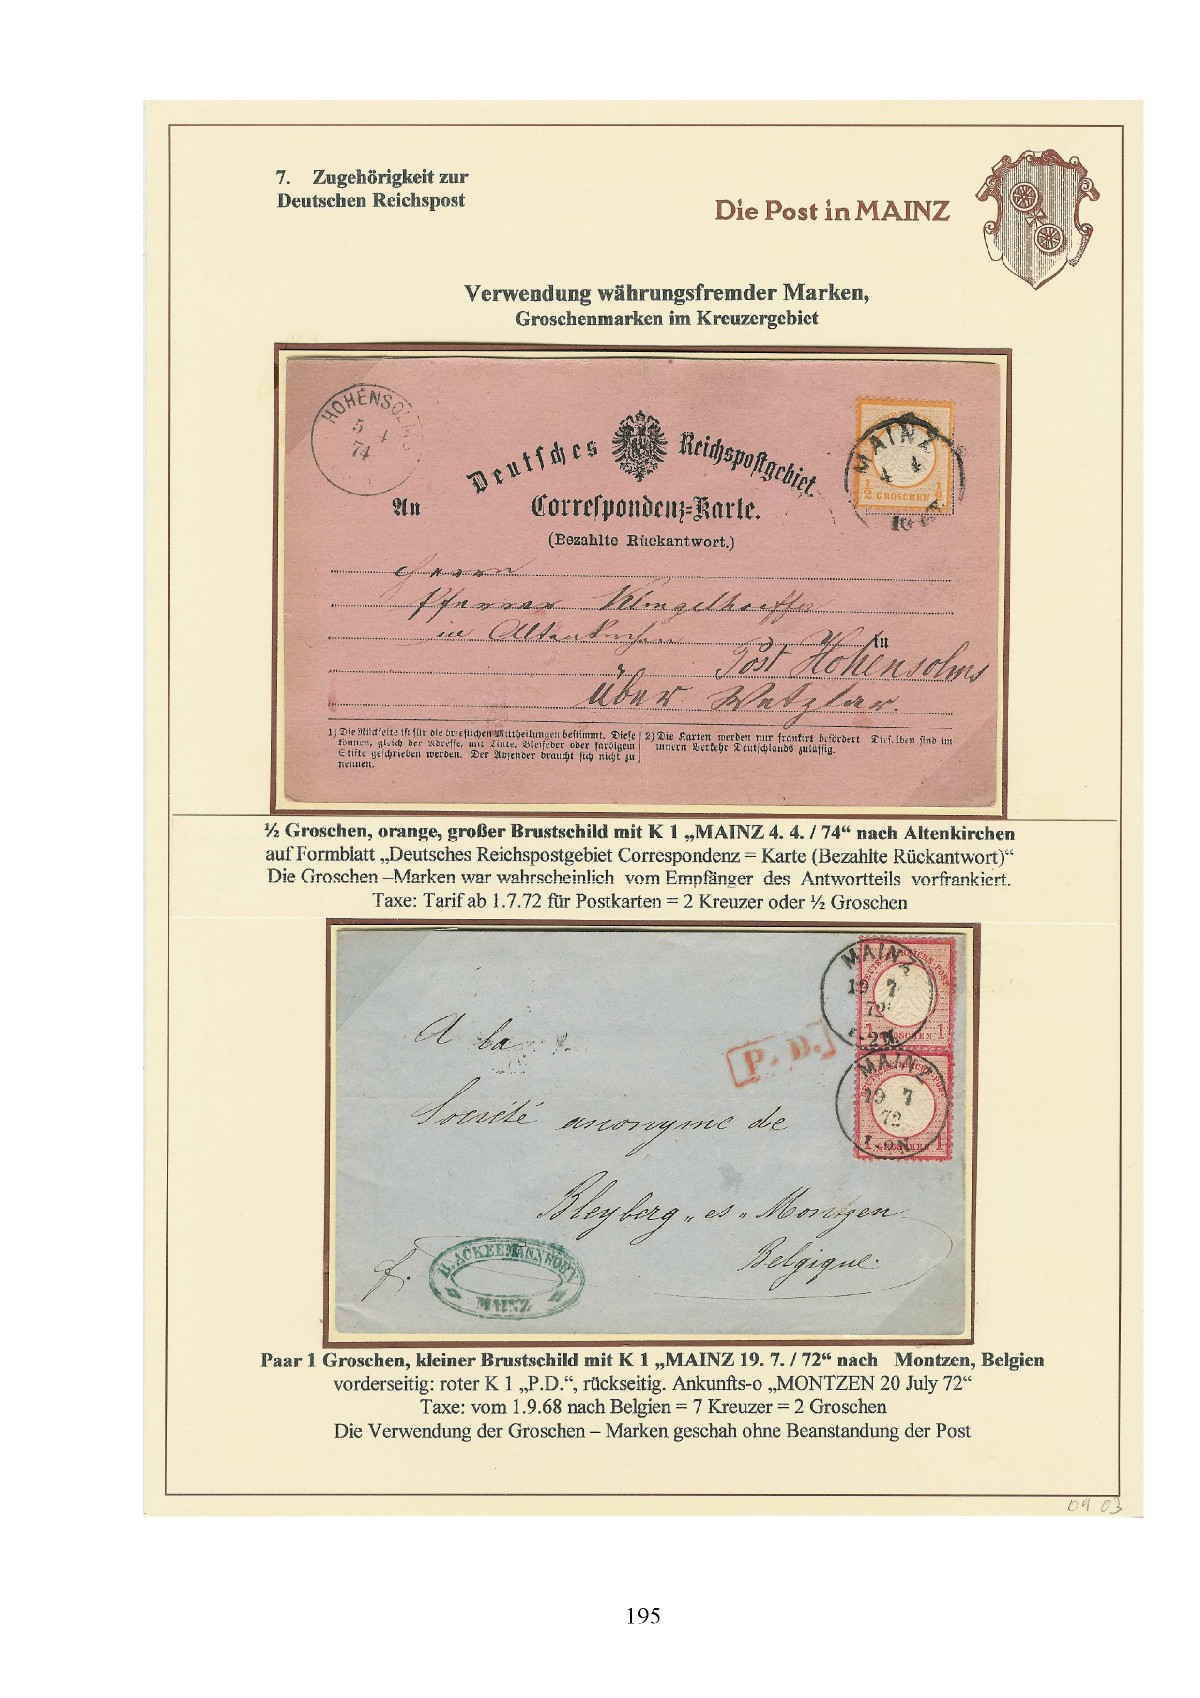 7. Zugehörigkeit zur
Deutschen Reichspost
Die Post in MAINZ
Verwendung währungsfremder Marken,
Groschenmarken im Kreuzergebiet
HOHENSOLMS
5 4
74
Deutsches Reichspostgebiet.
MAINZ
4 4
½ GROSCHEN ½
An
Correspondenz=Karte.
(Bezahlte Rückantwort.)
Herrn
Pfarrer Klingelhoeffer
in Altenkirchen
in
Post Hohensolms
über Wetzlar.
1) Die Rückseite ist für die brieflichen Mittheilungen bestimmt. Diese
können, gleich der Adresse, mit Tinte, Bleifeder oder farbigem
Stifte geschrieben werden. Der Absender braucht sich nicht zu
nennen.
2) Die Karten werden nur frankirt befördert Dieselben sind im
innern Verkehr Deutschlands zulässig.
½ Groschen, orange, großer Brustschild mit K 1 „MAINZ 4. 4. / 74“ nach Altenkirchen
auf Formblatt „Deutsches Reichspostgebiet Correspondenz = Karte (Bezahlte Rückantwort)“
Die Groschen –Marken war wahrscheinlich vom Empfänger des Antwortteils vorfrankiert.
Taxe: Tarif ab 1.7.72 für Postkarten = 2 Kreuzer oder ½ Groschen
MAINZ
19 7
72
1 GROSCHEN 1
A la
P. D.
MAINZ
19 7
72
1 GROSCHEN 1
Société anonyme de
Bleyberg „es„ Montzen
Belgique.
MAINZ
Paar 1 Groschen, kleiner Brustschild mit K 1 „MAINZ 19. 7. / 72“ nach Montzen, Belgien
vorderseitig: roter K 1 „P.D.“, rückseitig. Ankunfts-o „MONTZEN 20 July 72“
Taxe: vom 1.9.68 nach Belgien = 7 Kreuzer = 2 Groschen
Die Verwendung der Groschen – Marken geschah ohne Beanstandung der Post
09 03
195